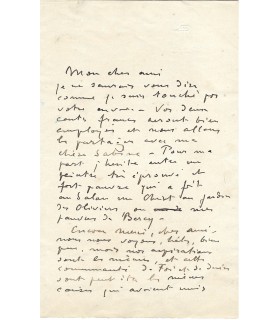 Mon cher ami
je ne saurais vous dire
comme je suis touché par
votre envoi – Vos deux
cents francs seront bien
employés et nous allons
les partager avec ma
chère – Pour ma
part j'hésite entre un
peintre, très éprouvé et
fort pauvre qui a fait
au Salon un Christ au jardin
des Oliviers ou mes
pauvres de Bercy –
Encore merci, cher ami –
nous nous voyons, hélas, bien
peu, mais nos aspirations
sont les mêmes, et cette
communauté de Foi et de
sont peut être les mêmes
causes qui avaient mis